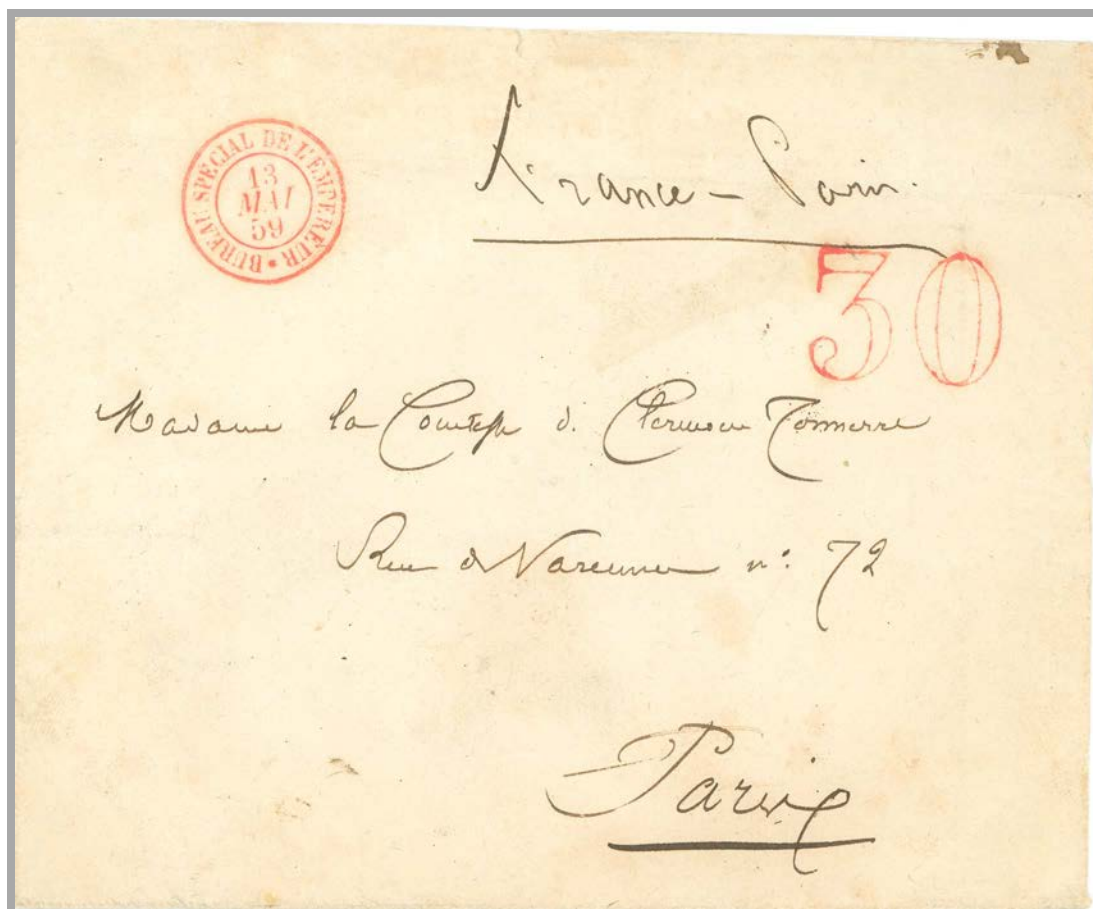 BUREAU SPECIAL DE L'EMPEREUR
13
MAI
59
France - Paris.
30
Madame la Comtesse de Clermont Tonnerre
Rue de Varenne n: 72
Paris